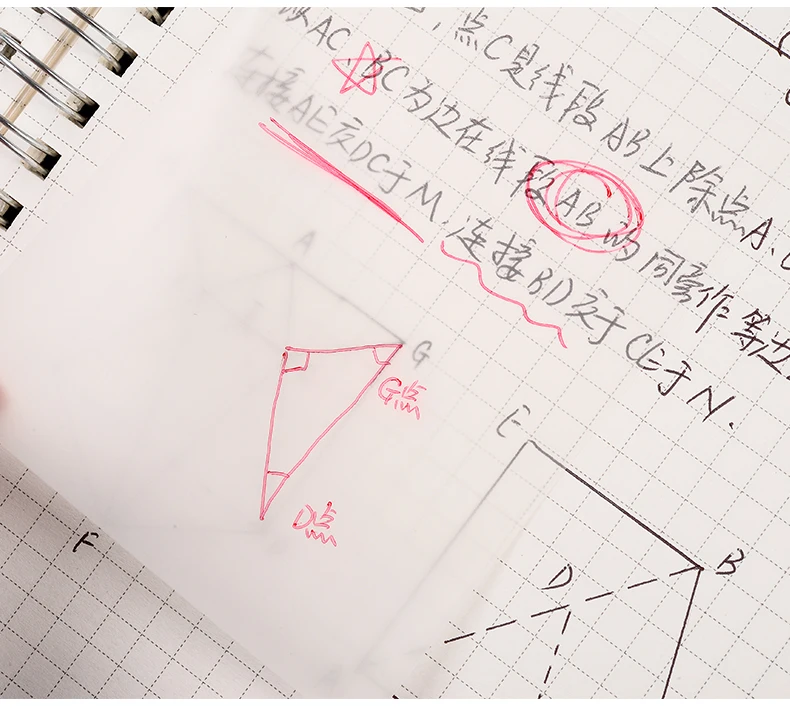 点C是线段AB上除点A、
AC、BC为边在线段AB的同侧作等边
连接AE交DC于M,连接BD交于CE于N.
A
G
G点
D点
E
B
D
F